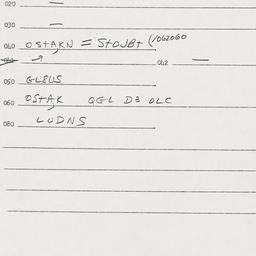 020 —
030 —
040 OSTAKN = STOJBT (/062060
042 —
050 GL8US
060 OSTAK QGL D3 OLC
080 LUDNS